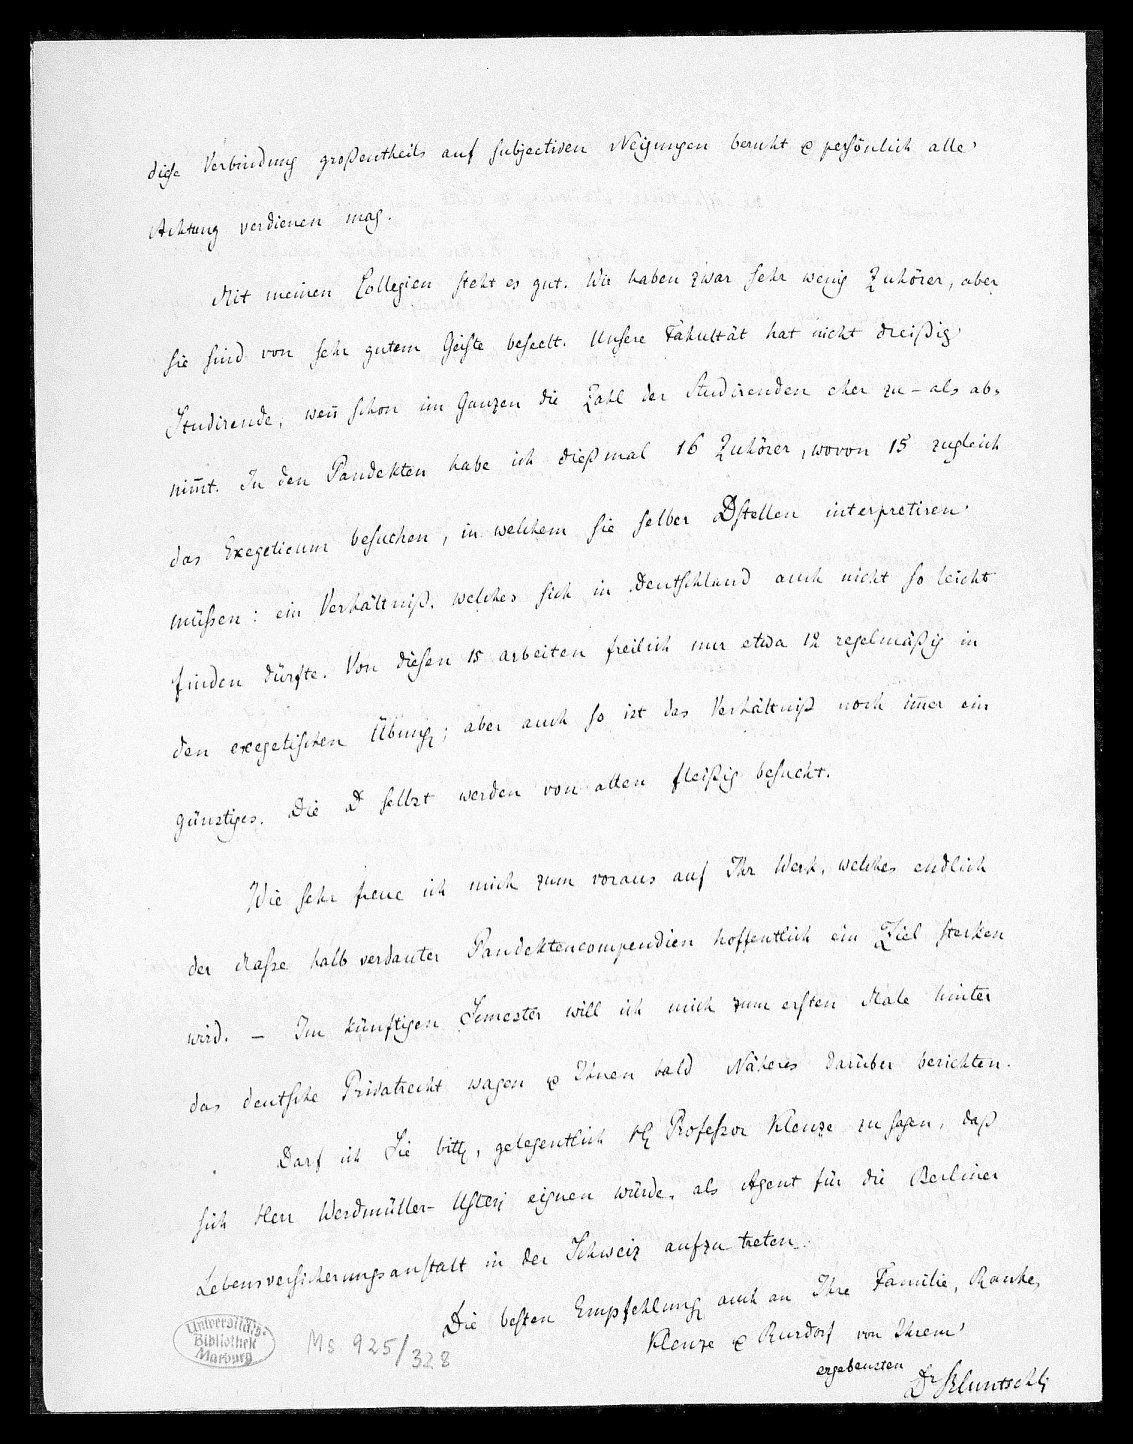 diese Verbindung großentheils auf subjectiven Neigungen beruht & persönlich alle
Achtung verdienen mag.
Mit meinen Collegien steht es gut. Wir haben zwar sehr wenig Zuhörer, aber
sie sind von sehr gutem Geiste beseelt. Unsere Fakultät hat nicht dreißig
Studirende, wen̄ schon im Ganzen die Zahl der Studirenden eher zu- als ab-
nim̄t. In den Pandekten habe ich dießmal 16 Zuhörer, wovon 15 zugleich
das Exegeticum besuchen, in welchem sie selber Dstellen interpretiren
müssen: ein Verhältniß, welches sich in Deutschland auch nicht so leicht
finden dürfte. Von diesen 15 arbeiten freilich nur etwa 12 regelmäßig in
den exegetischen Übung; aber auch so ist das Verhältniß noch im̄er ein
günstiges. Die D selbst werden von allen fleißig besucht.
Wie sehr freue ich mich zum voraus auf Ihr Werk, welches endlich
der Masse halb verdauter Pandektencompendien hoffentlich ein Ziel stecken
wird. – Im künftigen Semester will ich mich zum ersten Male hinter
das deutsche Privatrecht wagen & Ihnen bald Näheres darüber berichten.
Darf ich Sie bitt, gelegentlich H Professor Klenze zu sagen, daß
sich Herr Werdmüller-Usterj eignen würde, als Agent für die Berliner
Lebensversicherungsanstalt in der Schweiz aufzutreten.
Die besten Empfehlung auch an Ihre Familie, Ranke,
Klenze & Rudorf von Ihrem
ergebensten
Dr Bluntschli
Universitäts-
Bibliothek
Marburg
Ms 925/328